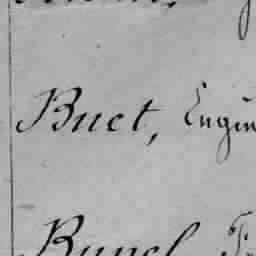 Buet, Engin
Bunel F